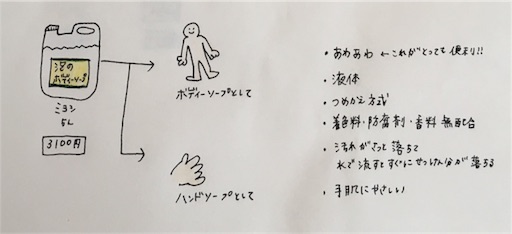 泡の
ボディーソープ
ミヨシ
5L
3100円
ボディーソープとして
ハンドソープとして
・あわあわ ←これがとっても便利!!
・液体
・つめかえ方式
・着色料・防腐剤・香料 無配合
・汚れがさっと落ちて
水で流すとすぐにせっけん分が落ちる
・手肌にやさしい